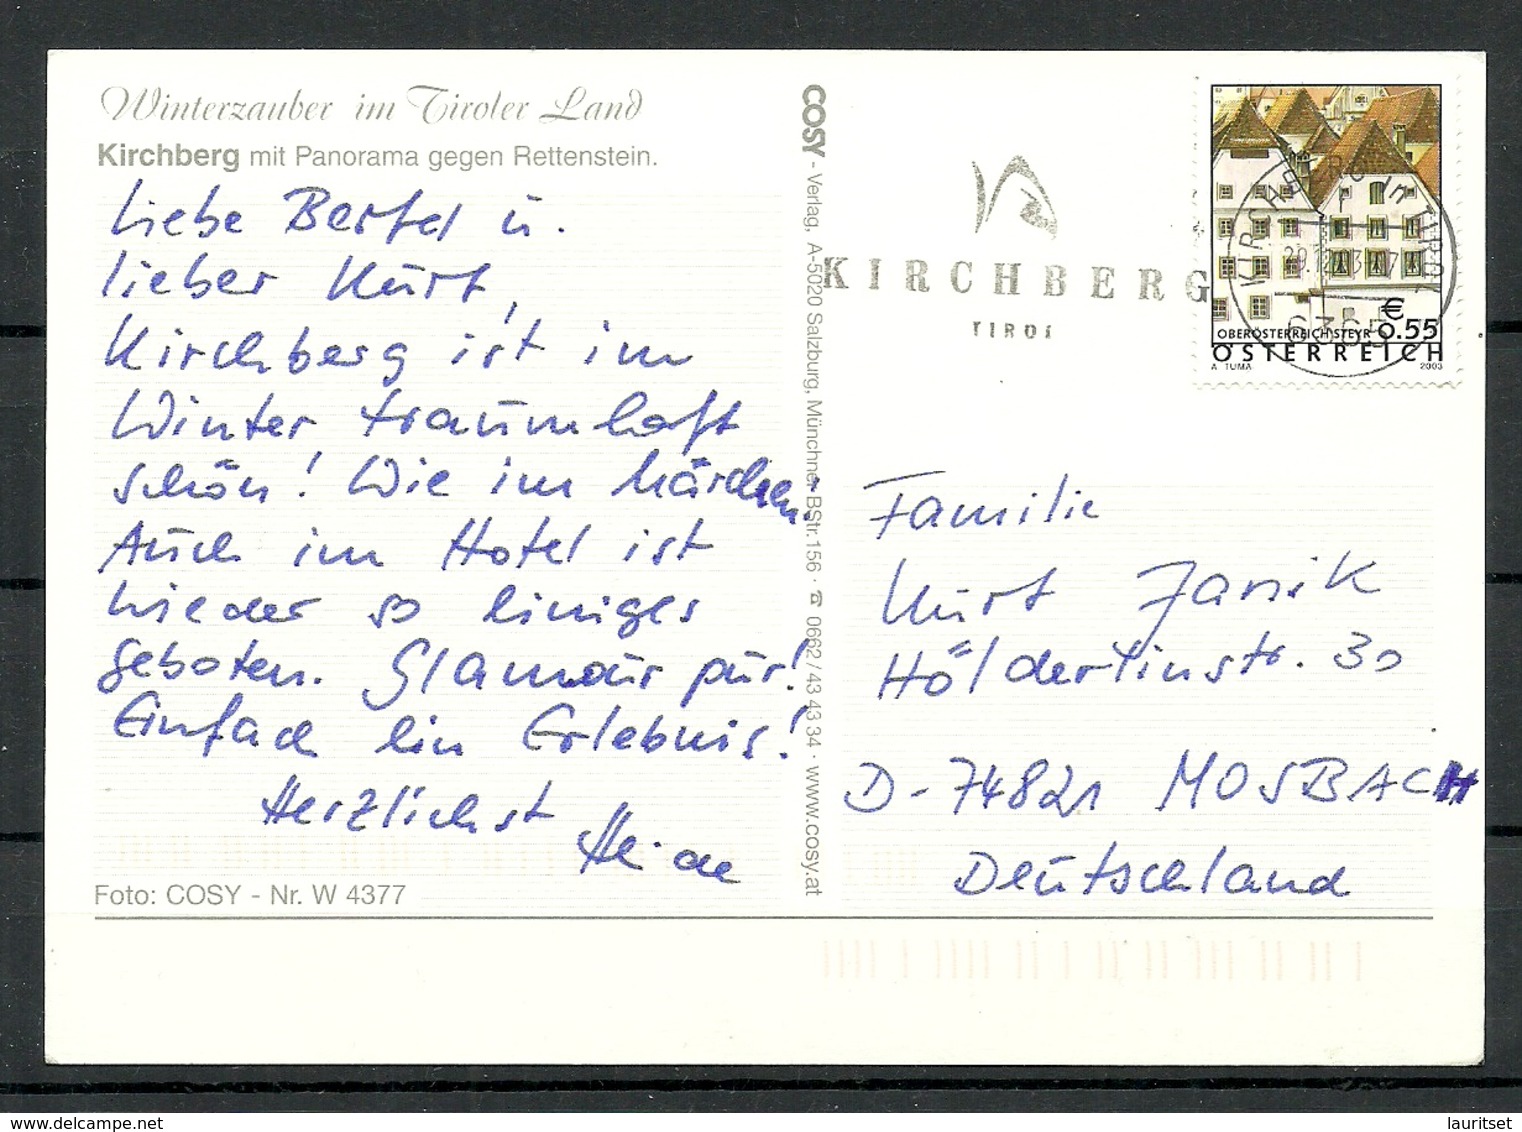 Winterzauber im Tiroler Land
Kirchberg mit Panorama gegen Rettenstein.
Liebe Bertel u.
lieber Kurt,
Kirchberg ist im
Winter traumhaft
schön! Wie im Märchen.
Auch im Hotel ist
wieder so einiges
geboten. Glamour pur!
Einfach ein Erlebnis!
Herzlichst
Heide
Foto: COSY - Nr. W 4377
COSY - Verlag, A-5020 Salzburg, Münchner BStr.156 · ☎ 0662 / 43 43 34 · www.cosy.at
KIRCHBERG
TIROL
KIRCHBERG in TIROL
6365
€
0.55
OBERÖSTERREICH STEYR
ÖSTERREICH
A TUMA 2003
Familie
Kurt Janik
Hölderlinstr. 30
D-74821 MOSBACH
Deutschland
lauritset